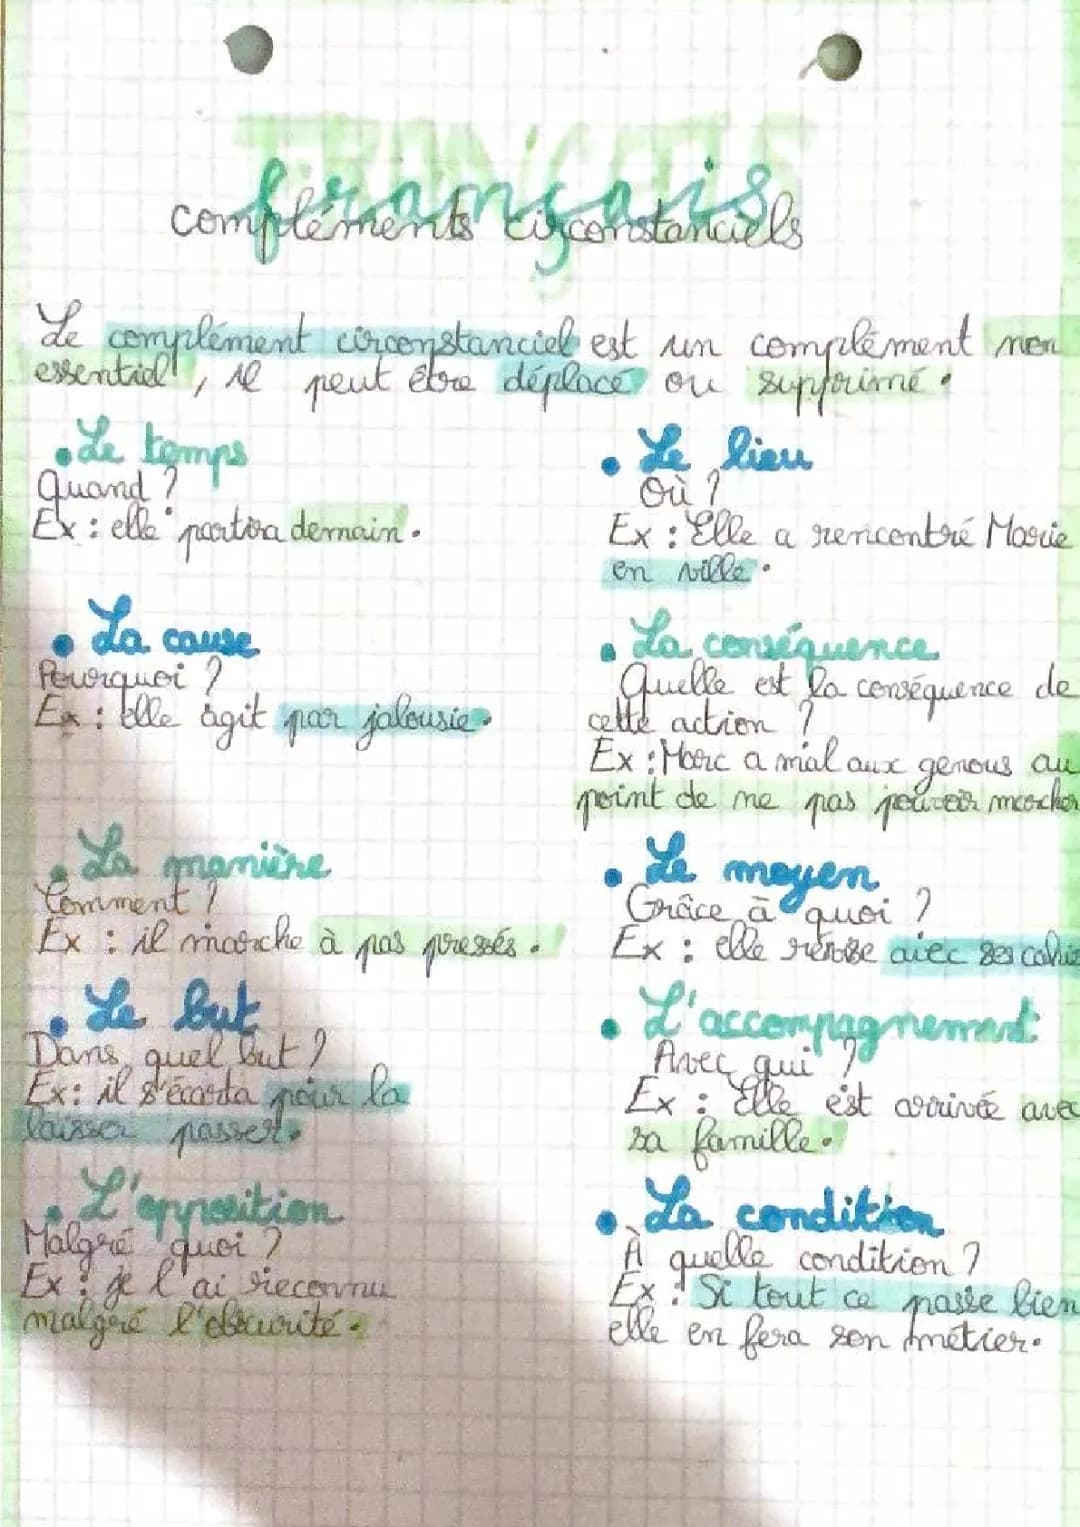 FRANÇAIS
français
compléments circonstanciels
Le complément circonstanciel est un complément non
essentiel, il peut être déplacé ou supprimé.
• Le temps
Quand ?
Ex : elle partira demain.
• Le lieu
Où ?
Ex : Elle a rencontré Marie
en ville.
• La cause
Pourquoi ?
Ex : elle agit par jalousie.
• La conséquence
Quelle est la conséquence de
cette action ?
Ex : Marc a mal aux genous au
point de ne pas pouvoir marcher
• La manière
Comment ?
Ex : il marche à pas pressés.
• Le moyen
Grâce à quoi ?
Ex : elle révise avec ses cahie
• Le but
Dans quel but ?
Ex : il s'écarta pour la
laisser passer.
• L'accompagnement
Avec qui ?
Ex : Elle est arrivée avec
sa famille.
• L'opposition
Malgré quoi ?
Ex : je l'ai reconnu
malgré l'obscurité.
• La condition
À quelle condition ?
Ex : Si tout ce passe bien
elle en fera son métier.